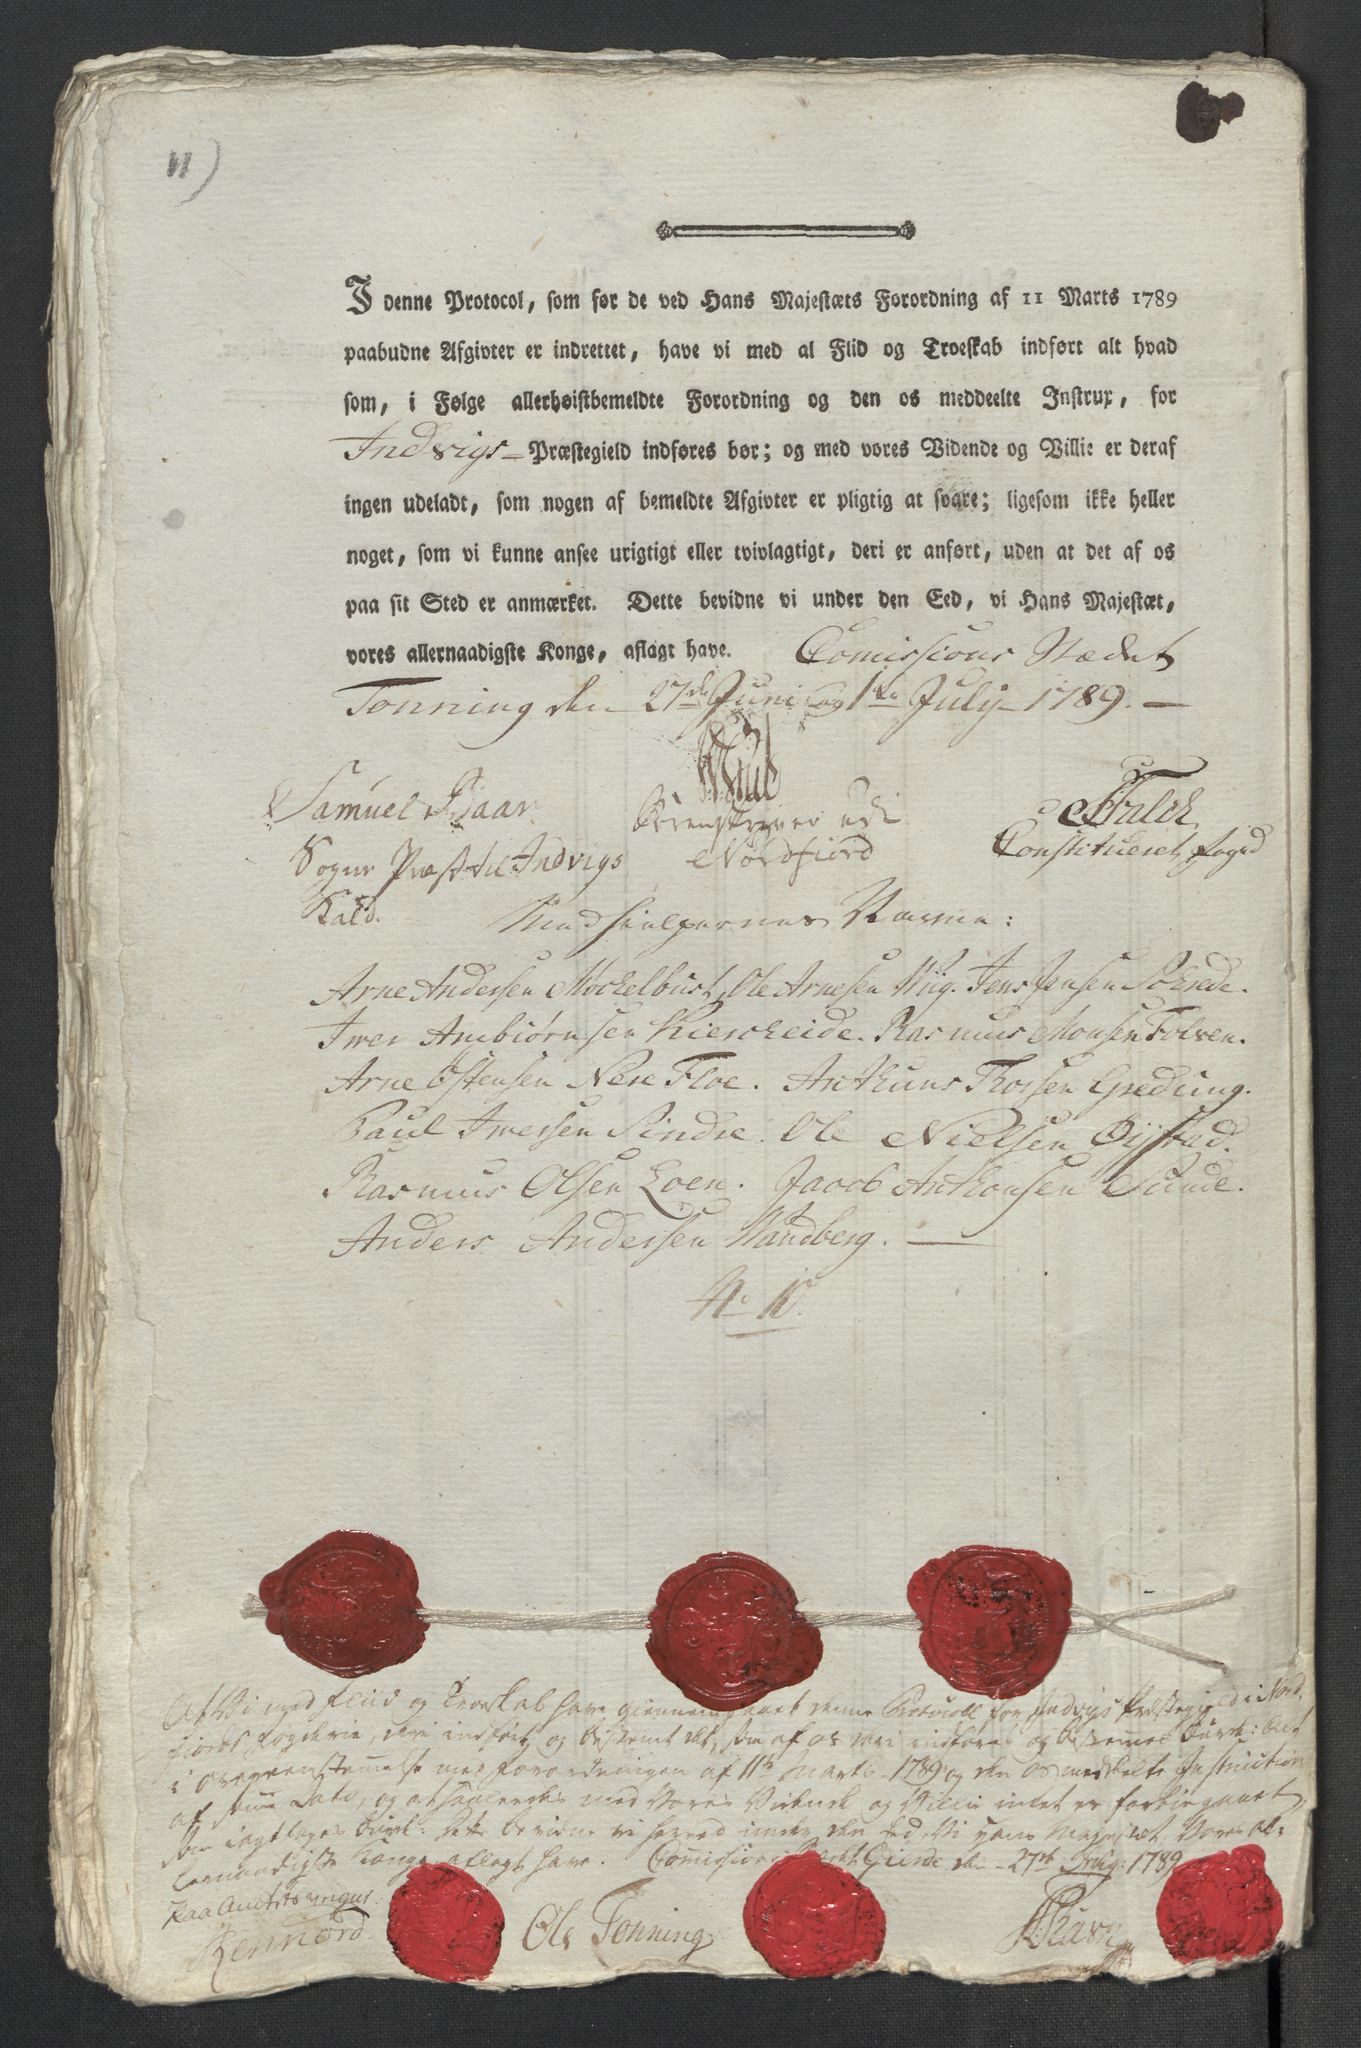 11)
I denne Protocol, som før de ved Hans Majestæts Forordning af 11 Marts 1789
paabudne Afgivter er indrettet, have vi med al Flid og Troeskab indført alt hvad
som, i Følge allerhøistbemeldte Forordning og den os meddeelte Instrux, for
Indvigs Præstegield indføres bør; og med vores Vidende og Villie er deraf
ingen udeladt, som nogen af bemeldte Afgivter er pligtig at svare; ligesom ikke heller
noget, som vi kunne ansee urigtigt eller tvivlagtigt, deri er anført, uden at det af os
paa sit Sted er anmærket. Dette bevidne vi under den Eed, vi Hans Majestæt,
vores allernaadigste Konge, aflagt have. Comissions Stædet
Tonning den 27de Juni og 1te July 1789.
Samuel
Falck
Sorenskriver udi
Sogne Præst til Indvigs Nordfiord Constitueret foged
Kald.
Medhielpernes Navne:
Arne Andersen Møckelbust, Ole Arnesen Wiig. Jens Jensen
Iwer Ambiørnsen Rasmus Monsen Tolven.
Arne Østensen Nere Floe. Anthuns Thorsen
Paul Iwersen Sindre. Ole Nielsen
Rasmus Olsen Loen. Jacob Anthonsen Sunde.
Anders Andersen Wandberg.
At Vi med Fliid og Troeskab have giennemgaaet denne Protocoll for Indvigs Præstegield i Nord-
fiords Fogderie, deri indført og bestemt det, som af os deri indføres og bestemmes burde: alt
i overeensstemmelse med Forordningen af 11te Marts 1789 og den os meddeelte Instruction
af Dato, og at saaledes med Vores Vidende og Villie intet er forbiegaaet
som iagttages burde: dette bevidne vi herved under den Eed, Vi Hans Majestæt, Vores al-
lernaadigste Konge aflagt have. Comissions Stædet Gierde den 27de Aug: 1789
Paa Amtets vegne
Rennord. Ole Tonning